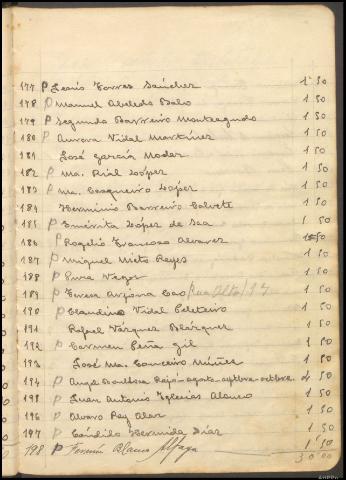 177 P Jesús Torres Sánchez 1'50
178 P Manuel Abeledo Balo 1'50
179 P Segundo Barreiro Monteagudo 1'50
180 P Aurora Vidal Martínez 1'50
181 José García Modar 1'50
182 P Ma. Rial López 1'50
183 P Ma. Cesqueiro López 1'50
184 Herminio Barreiro Calvete 1'50
185 P Emérita López de Saa 1'50
186 P Rogelio Francoso Alvarez 1'50
187 P Miguel Nieto Reyes 1'50
188 P Pura Vegas 1'50
189 P Teresa Arjona Cao (Rua Alta) 1'50
190 P Claudino Vidal Peleteiro 1'50
191 Rafael Vázquez Blázquez 1'50
192 P Carmen Peña Gil 1'50
193 José Ma. Núñez 1'50
194 P Rajó - agosto 1'50
195 P Juan Antonio Iglesias Alonso 1'50
196 P Alvaro Rey Alar 1'50
197 P Cándido Bermuda Díaz 1'50
198 P Fermín Blanco 1'50